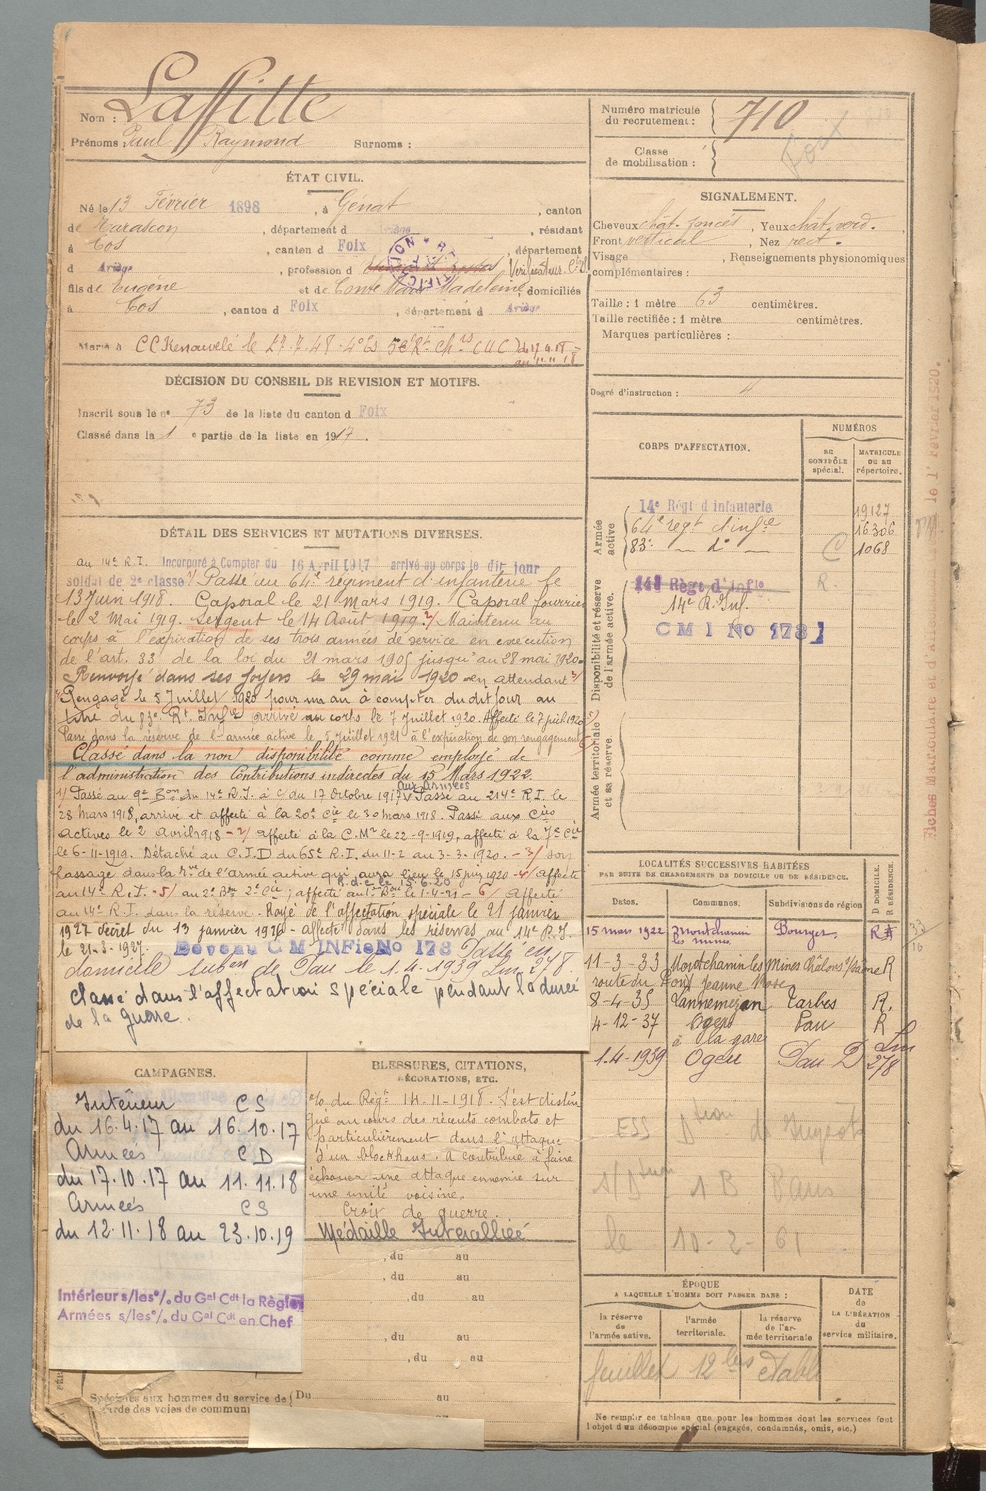 Nom : Laffitte
Prénoms : Paul Raymond Surnoms :
Numéro matricule du recrutement : 710
Foix
Classe de mobilisation :
ÉTAT CIVIL.
Né le 13 Février 1898, à Génat, canton
de Tarascon, département d Ariège, résidant
à Cos, canton d Foix, département
d Ariège, profession d
fils de Eugène et de Madeleine, domiciliés
à Cos, canton d Foix, département d Ariège
Marié à
DÉCISION DU CONSEIL DE REVISION ET MOTIFS.
Inscrit sous le no 73 de la liste du canton d Foix
Classé dans la 1 e partie de la liste en 1917.
SIGNALEMENT.
Cheveux chat. foncés, Yeux chat. verd.
Front vertical, Nez rect.
Visage Renseignements physionomiques
complémentaires :
Taille : 1 mètre 63 centimètres.
Taille rectifiée : 1 mètre centimètres.
Marques particulières :
Degré d'instruction : 4
DÉTAIL DES SERVICES ET MUTATIONS DIVERSES.
au 14e R.I. Incorporé à Compter du 16 Avril 1917 arrivé au corps le dit jour
soldat de 2e classe 1/ Passé au 64e régiment d'infanterie le
13 juin 1918. Caporal le 21 mars 1919. Caporal fourrier
le 2 Mai 1919. Sergent le 14 Août 1919. 2/ Maintenu au
corps à l'expiration de ses trois années de service en exécution
de l'art. 33 de la loi du 21 mars 1905 jusqu'au 28 mai 1920.
Renvoyé dans ses foyers le 29 mai 1920 en attendant 3/
Rengagé le 5 Juillet 1920 pour un an à compter du dit jour au
titre du 83e Rt. Infie arrivé au corps le 7 Juillet 1920. Affecté le 7 juil 1920
Passé dans la réserve de l'armée active le 5 Juillet 1921 à l'expiration de son rengagement
Classé dans la non disponibilité comme employé de
l'administration des Contributions indirectes du 15 Mars 1922.
aux Armées
1/ Passé au 9e Bon du 14e R.I. à c/ du 17 Octobre 1917 Passé au 214e R.I. le
28 mars 1918, arrivé et affecté à la 20e Cie le 30 mars 1918. Passé aux Cies
actives le 2 avril 1918 - 2/ affecté à la C.Mr le 22-9-1919, affecté à la 7e Cie
le 6-11-1919. Détaché au C.I.D du 65e R.I. du 11-2 au 3-3-1920. - 3/ son
passage dans la rve de l'armée active qui aura lieu le 15 juin 1920 - 4/ affecté
R.d.c le 15-6-20
au 14e R.I. - 5/ au 2e Bon 2e Cie ; affecté au 1er Bon le 1-4-21 - 6/ Affecté
au 14e R.I. dans la réserve. Rayé de l'affectation spéciale le 21 janvier
1927 décret du 13 janvier 1920 - affecté dans les réserves au 14e R.I.
le 21-3-1927. Réseau C M INFie No 178 Passé en
domicile subon de Pau le 1.4.1939 Lm 278.
Classé dans l'affectation spéciale pendant la durée
de la guerre.
CORPS D'AFFECTATION.
NUMÉROS
AU CONTRÔLE spécial.
MATRICULE OU AU répertoire.
Armée active
14e Régt d'infanterie 19127
64e régt d'infie 16306
83e — do — C 1068
Disponibilité et réserve de l'armée active.
141 Régt d'Infie R.
14e R. Inf.
C M I No 178
Armée territoriale et sa réserve.
Fiches Matriculaire et d'aff le 1er Février 1920.
LOCALITÉS SUCCESSIVES HABITÉES
PAR SUITE DE CHANGEMENTS DE DOMICILE OU DE RÉSIDENCE.
Dates. Communes. Subdivisions de région D DOMICILE. R RÉSIDENCE.
15 mars 1922 Montchanin les mines Bourges R
11-3-33 Montchanin les Mines Châlons s/Saône R
route du Pont Jeanne Rose
8-4-35 Lannemezan Tarbes R.
4-12-37 Ogeu Pau R
à la gare
1.4-1939 Ogeu Pau D Lm 278
1 B Paris
le 10-2-61
CAMPAGNES.
Intérieur CS
du 16.4.17 au 16.10.17
Armées CD
du 17.10.17 au 11.11.18
Armées CS
du 12.11.18 au 23.10.19
Intérieur s/les o/. du Gal Cdt la Région
Armées s/les o/. du Gal Cdt en Chef
BLESSURES, CITATIONS,
DÉCORATIONS, ETC.
O/o du Régt 14-11-1918. S'est distin
gué au cours des récents combats et
particulièrement dans l'attaque
d'un blockhaus. A contribué à faire
échouer une attaque ennemie sur
une unité voisine.
Croix de guerre.
Médaille Interalliée
, du au
, du au
, du au
, du au
, du au
Spéciales aux hommes du service de
garde des voies de commun
Du au
ÉPOQUE
A LAQUELLE L'HOMME DOIT PASSER DANS :
la réserve de l'armée active.
l'armée territoriale.
la réserve de l'armée territoriale
DATE DE LA LIBÉRATION du service militaire.
feuillet 12 bis établi
Ne remplir ce tableau que pour les hommes dont les services font
l'objet d'un décompte spécial (engagés, condamnés, omis, etc.)